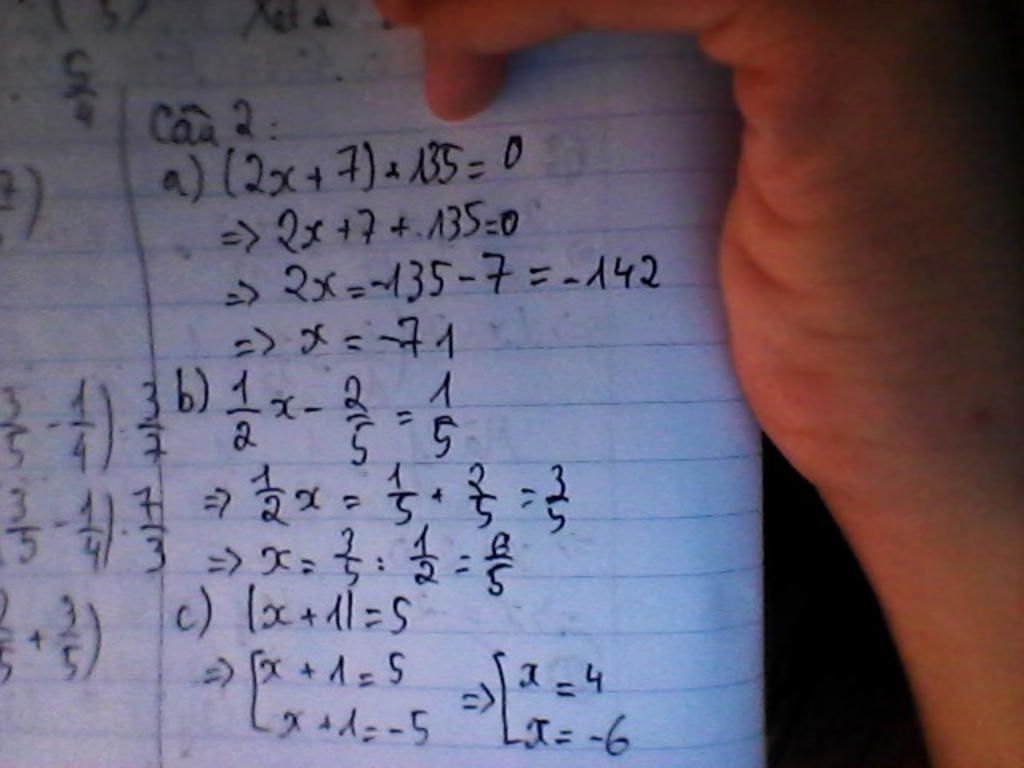 5/4
Câu 2:
a) (2x + 7) + 135 = 0
=> 2x + 7 + 135 = 0
=> 2x = -135 - 7 = -142
=> x = -71
b) 1/2 x - 2/5 = 1/5
=> 1/2 x = 1/5 + 2/5 = 3/5
=> x = 3/5 : 1/2 = 6/5
c) |x + 1| = 5
=> [ x + 1 = 5 => [ x = 4
x + 1 = -5 x = -6
3/5 - 1/4) . 3/7
3/5 - 1/4) . 7/3
+ 3/5)